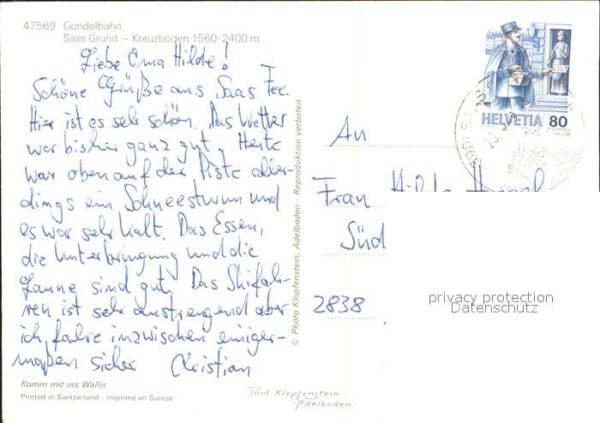 47569 Gondelbahn
Saas Grund – Kreuzboden 1560-2400 m.
Liebe Oma Hilde!
Schöne Grüße aus Saas Fee.
Hier ist es sehr schön. Das Wetter
war bisher ganz gut. Heute
war oben auf der Piste aller-
dings ein Schneesturm und
es war sehr kalt. Das Essen,
die Unterbringung und die
Laune sind gut. Das Skifah-
ren ist sehr anstrengend aber
ich fahre inzwischen einiger-
maßen sicher Christian
Komm mit ins Wallis
Printed in Switzerland - Imprimé en Suisse
© Photo Klopfenstein, Adelboden - Reproduktion verboten
Phot Klopfenstein
Adelboden
HELVETIA 80
An
Frau Hilde
Süd
2838
privacy protection
Datenschutz